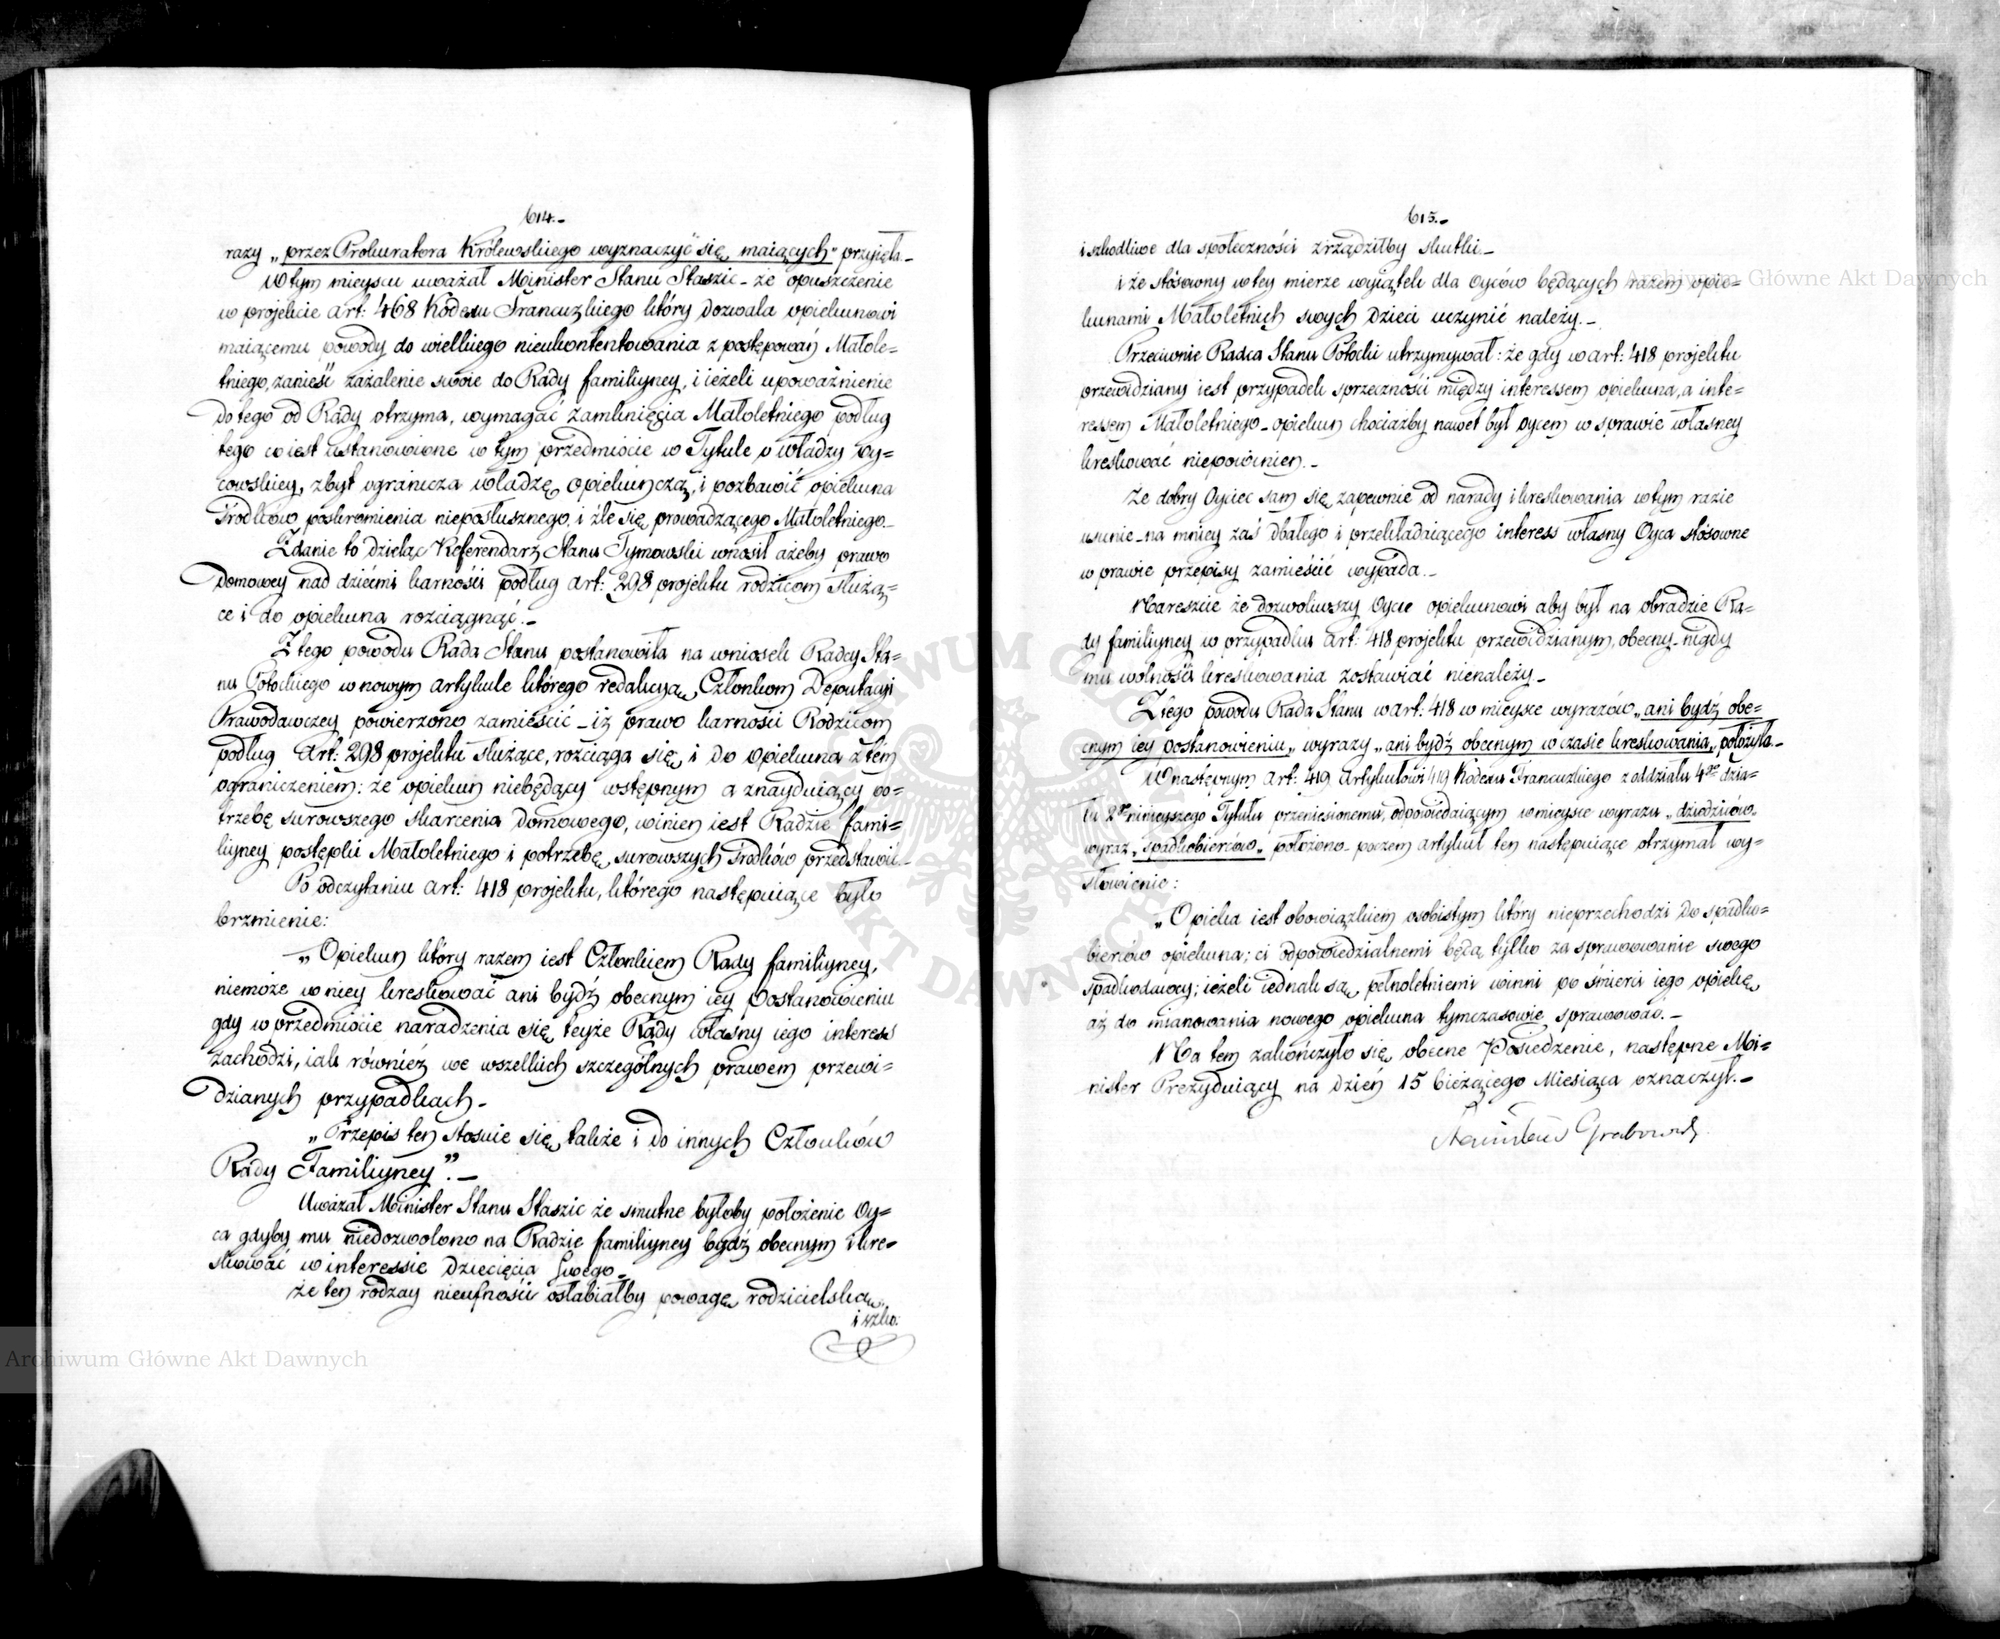 614.-
razy „przez Prokuratora Królewskiego wyznaczyć się maiących" przyięła.-
W tym mieyscu uważał Minister Stanu Staszic - że opuszczenie
w projekcie art: 468 Kodexu Francuzkiego który dozwala opiekunowi
maiącemu powody do wielkiego nieukontentowania z postępowań Małole-
tniego, zanieść zażalenie swoie do Rady familiyney, i ieżeli upoważnienie
do tego od Rady otrzyma, wymagać zamknięcia Małoletniego podług
tego co iest ustanowione w tym przedmiocie w Tytule o władzy Oy-
cowskiey, zbyt ogranicza władzę opiekunczą, i pozbawić opiekuna
środków poskromienia nieposłusznego i źle się prowadzącego Małoletniego.-
Zdanie to dzieląc Referendarz Stanu Tymowski wnosił ażeby prawo
domowey nad dziećmi karności podług art: 298 projektu rodzicom służą-
ce i do opiekuna rozciągnąć.-
Z tego powodu Rada Stanu postanowiła na wniosek Radcy Sta-
nu Potockiego w nowym artykule którego redakcyą Członkom Deputacyi
Prawodawczey powierzono zamieścić - iż prawo karności Rodzicom
podług art: 298 projektu służące, rozciąga się i do opiekuna z tem
ograniczeniem: że opiekun niebędący wstępnym a znayduiący po-
trzebę surowszego skarcenia domowego, winien iest Radzie fami-
liyney postępki Małoletniego i potrzebę surowszych środków przedstawić.-
Po odczytaniu art: 418 projektu, którego następuiące było
brzmienie:
„Opiekun który razem iest Członkiem Rady familiyney,
niemoże w niey kreskować ani bydź obecnym iey postanowieniu
gdy w przedmiocie naradzenia się teyże Rady własny iego interess
zachodzi, iak również we wszelkich szczególnych prawem przewi-
dzianych przypadkach.-
„Przepis ten stosuie się także i do innych Członków
Rady Familiyney".-
Uważał Minister Stanu Staszic że smutne byłoby położenie Oy-
ca gdyby mu niedozwolono na Radzie familiyney bydź obecnym i kre-
skować w interessie dziecięcia swego.-
że ten rodzay nieufności osłabiałby powagę rodzicielską,
i szko:
615.-
i szkodliwe dla społeczności zrządziłby skutki.-
i że stosowny w tey mierze wyiątek dla Oyców będących razem opie-
kunami Małoletnich swych dzieci uczynić należy.-
Przeciwnie Radca Stanu Potocki utrzymywał: że gdy w art: 418 projektu
przewidziany iest przypadek sprzeczności między interessem opiekuna, a inte-
ressem Małoletniego - opiekun chociażby nawet był oycem w sprawie własney
kreskować niepowinien.-
Że dobry Oyciec sam się zapewnie od narady i kreskowania w tym razie
usunie - na mniey zaś dbałego i przekładaiącego interess własny Oyca stósowne
w prawie przepisy zamieścić wypada.-
Nareszcie że dozwoliwszy Oycu opiekunowi aby był na obradzie Ra-
dy familiyney w przypadku art: 418 projektu przewidzianym, obecny - nigdy
mu wolności kreskowania zostawiać nienależy.-
Z tego powodu Rada Stanu w art: 418 w mieysce wyrazów „ani bydź obe-
cnym iey postanowieniu" wyrazy „ani bydź obecnym w czasie kreskowania" położyła.-
W następnym art: 419 artykułowi 419 Kodexu Francuzkiego z oddziału 4go dzia-
łu 2go ninieyszego Tytułu przeniesionemu, odpowiedaiącym w mieysce wyrazu „dziedziców"
wyraz „spadkobierców" położono - poczem artykuł ten następuiące otrzymał wy-
słowienie:
„Opieka iest obowiązkiem osobistym który nieprzechodzi do spadko-
bierców opiekuna; ci odpowiedzialnemi będą tylko za sprawowanie swego
spadkodawcy; ieżeli iednak są pełnoletniemi winni po śmierci iego opiekę
aż do mianowania nowego opiekuna tymczasowie sprawować.-
Na tem zakończyło się obecne Posiedzenie, następne Mi-
nister Prezyduiący na dzień 15 bieżącego Miesiąca oznaczył.-
Stanisław Grabowski
Archiwum Główne Akt Dawnych
Archiwum Główne Akt Dawnych
ARCHIWUM GŁÓWNE AKT DAWNYCH